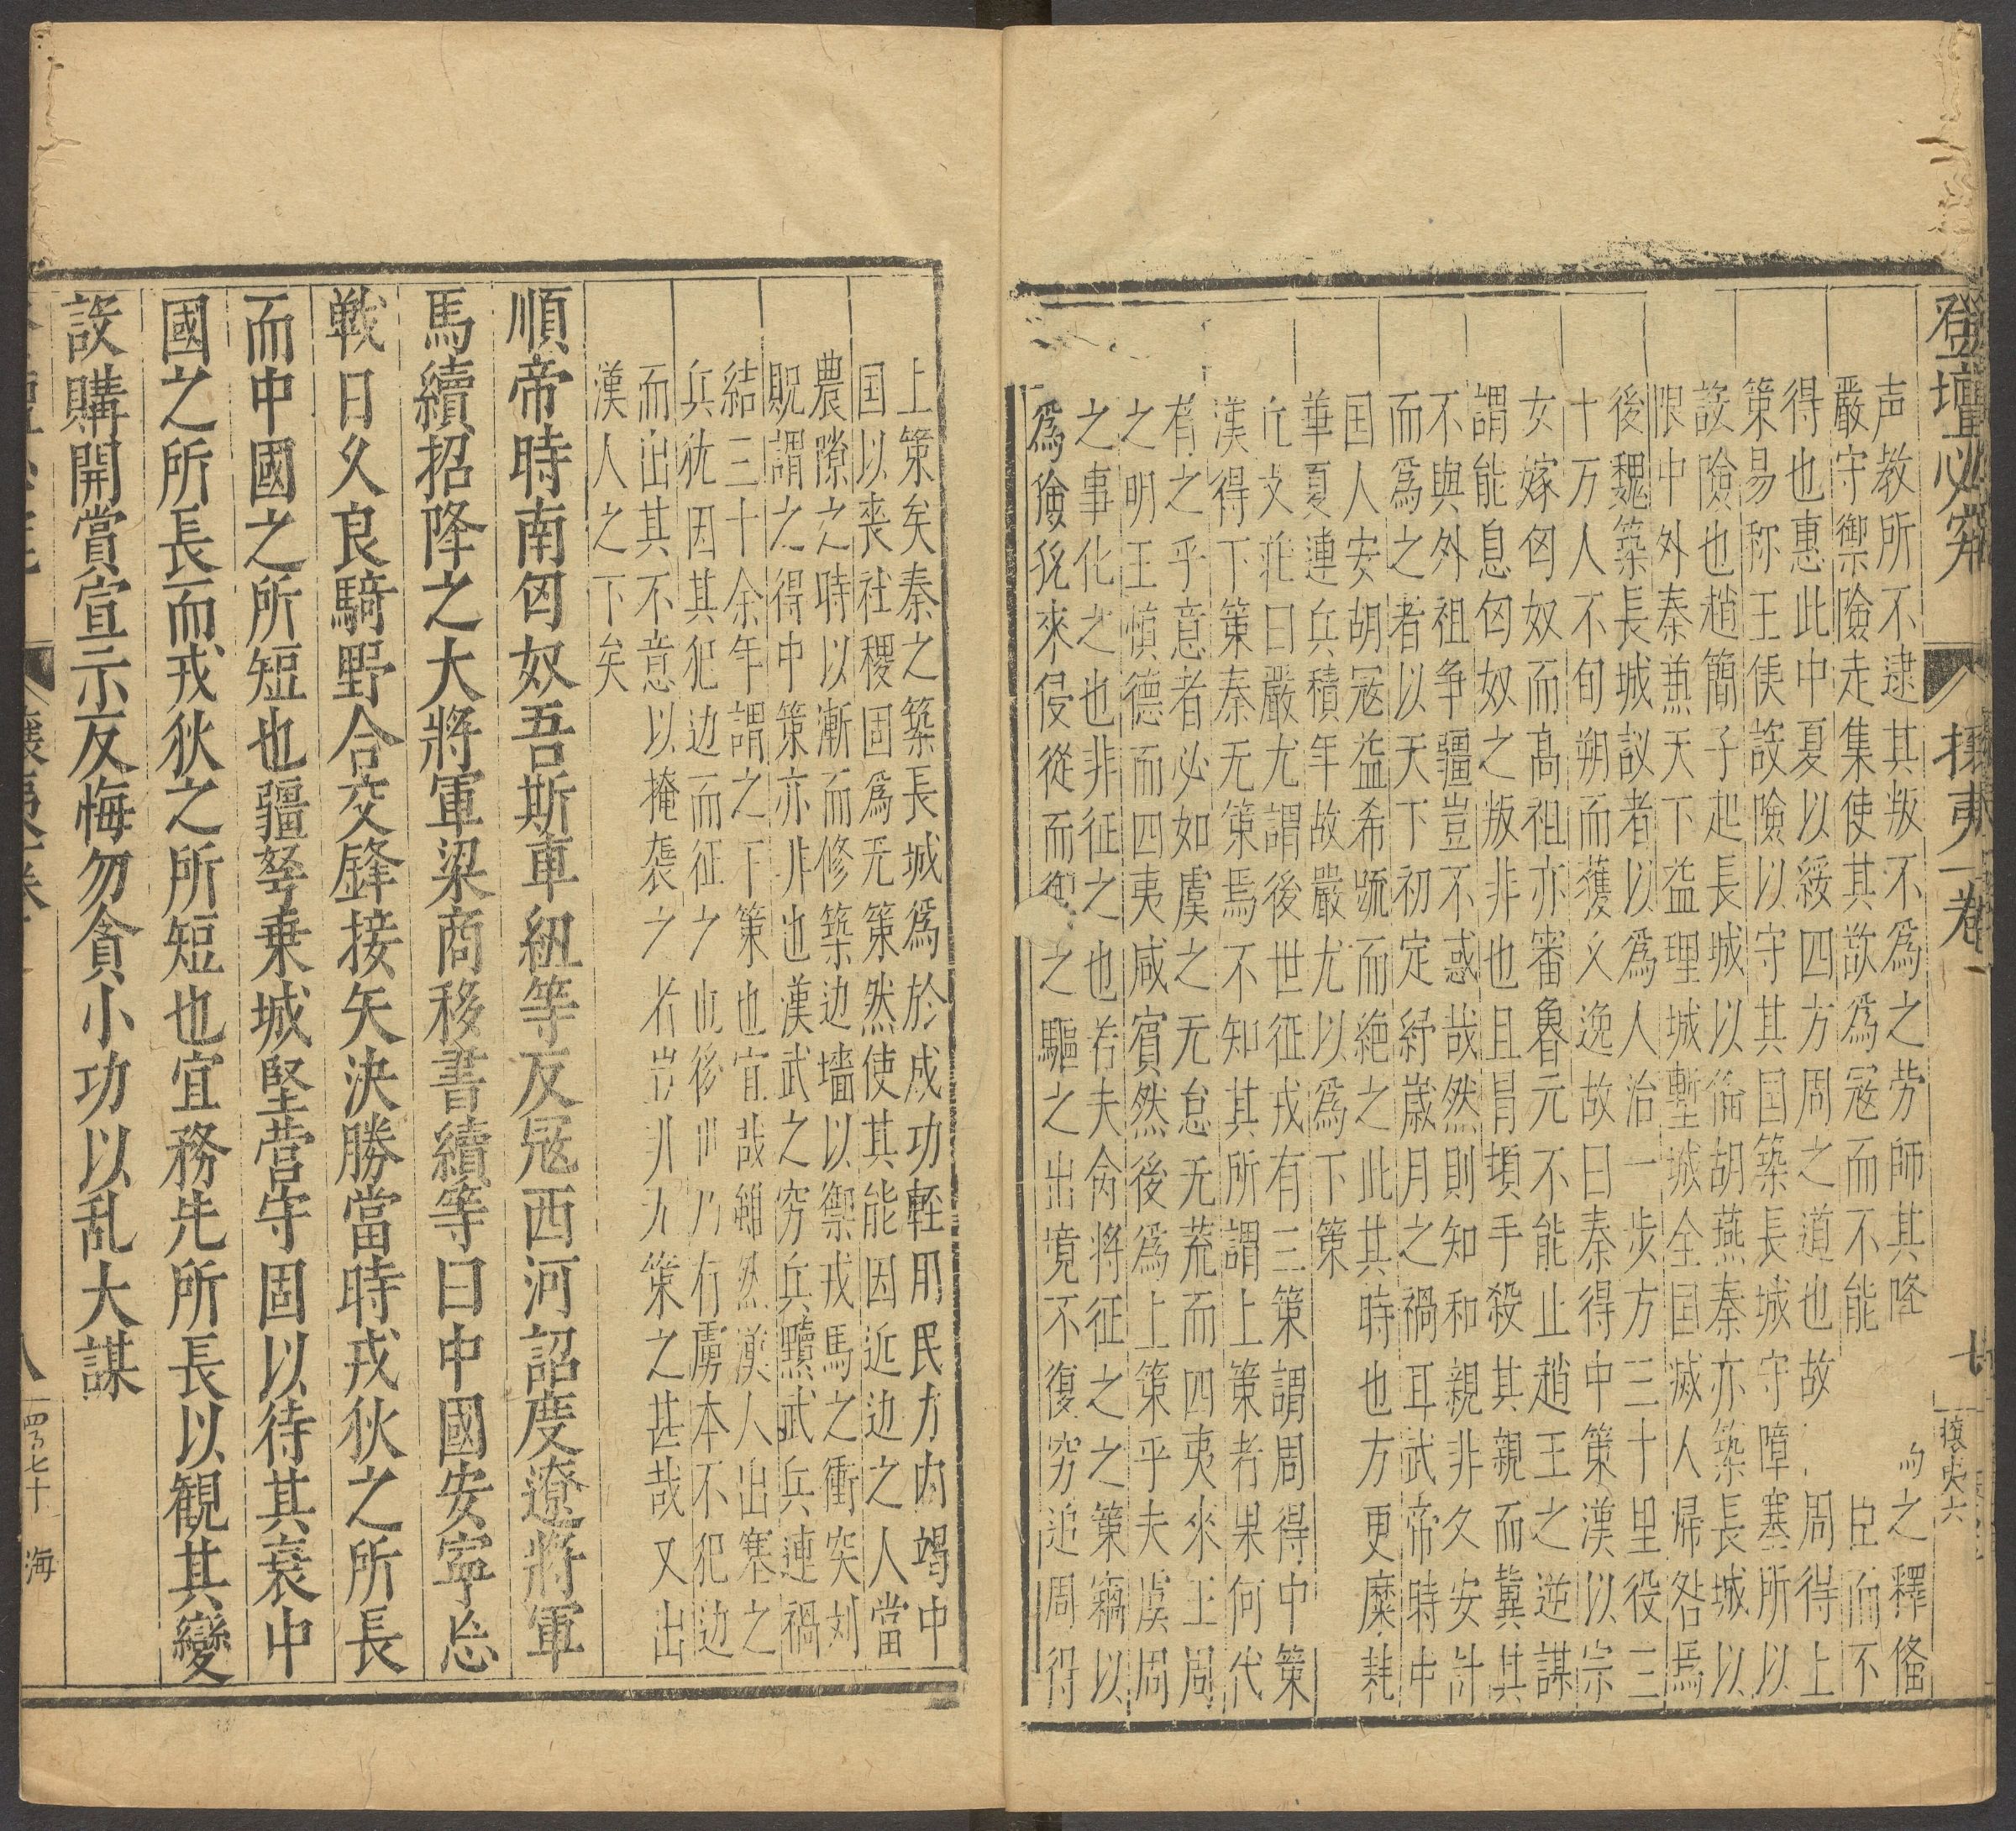 登壇必究
攘夷一卷
七
攘夷六
声教所不逮其叛不爲之劳師其降之釋俻
嚴守禦險走集使其欵爲冦而不能臣而不
得也惠此中夏以綏四方周之道也故周得上
策易称王侯設險以守其国築長城守障塞所以
設險也趙簡子起長城以俻胡燕秦亦築長城以
限中外秦兼天下益理城塹城全国滅人帰咎焉
後魏築長城議者以爲人治一步方三十里役三
十万人不旬朔而獲久逸故曰秦得中策漢以宗
女嫁匈奴而髙祖亦審魯元不能止趙王之逆謀
謂能息匈奴之叛非也且冒頓手殺其親而冀其
不與外祖争疆豈不惑哉然則知和親非久安計
而爲之者以天下初定紓嵗月之禍耳武帝時中
国人安胡冦益希疏而絶之此其時也方更糜耗
華夏連兵積年故嚴尤以爲下策
丘文荘曰嚴尤謂後世征戎有三策謂周得中策
漢得下策秦无策焉不知其所謂上策者果何代
有之乎意者必如虞之无怠无荒而四夷來王周
之明王愼德而四夷咸賓然後爲上策乎夫虞周
之事化之也非征之也若夫命将征之之策竊以
爲獫狁來侵從而御之驅之出境不復窮追周得
上策矣秦之築長城爲於成功軽用民力内竭中
国以喪社稷固爲无策然使其能因近边之人當
農隙之時以漸而修築边墻以禦戎馬之衝突刘
貺謂之得中策亦非也漢武之穷兵黷武兵連禍
結三十余年謂之下策也宜哉雖然漢人出塞之
兵犹因其犯边而征之也後世乃有虜本不犯边
而出其不意以掩袭之者豈非无策之甚哉又出
漢人之下矣
順帝時南匈奴吾斯車紐等反冦西河詔度遼將軍
馬續招降之大將軍梁商移書續等曰中國安寧忘
戰日久良騎野合交鋒接矢決勝當時戎狄之所長
而中國之所短也疆弩乗城堅营守固以待其衰中
國之所長而戎狄之所短也宜務先所長以観其變
設購開賞宣示反悔勿貪小功以乱大謀
八
四百七十
海